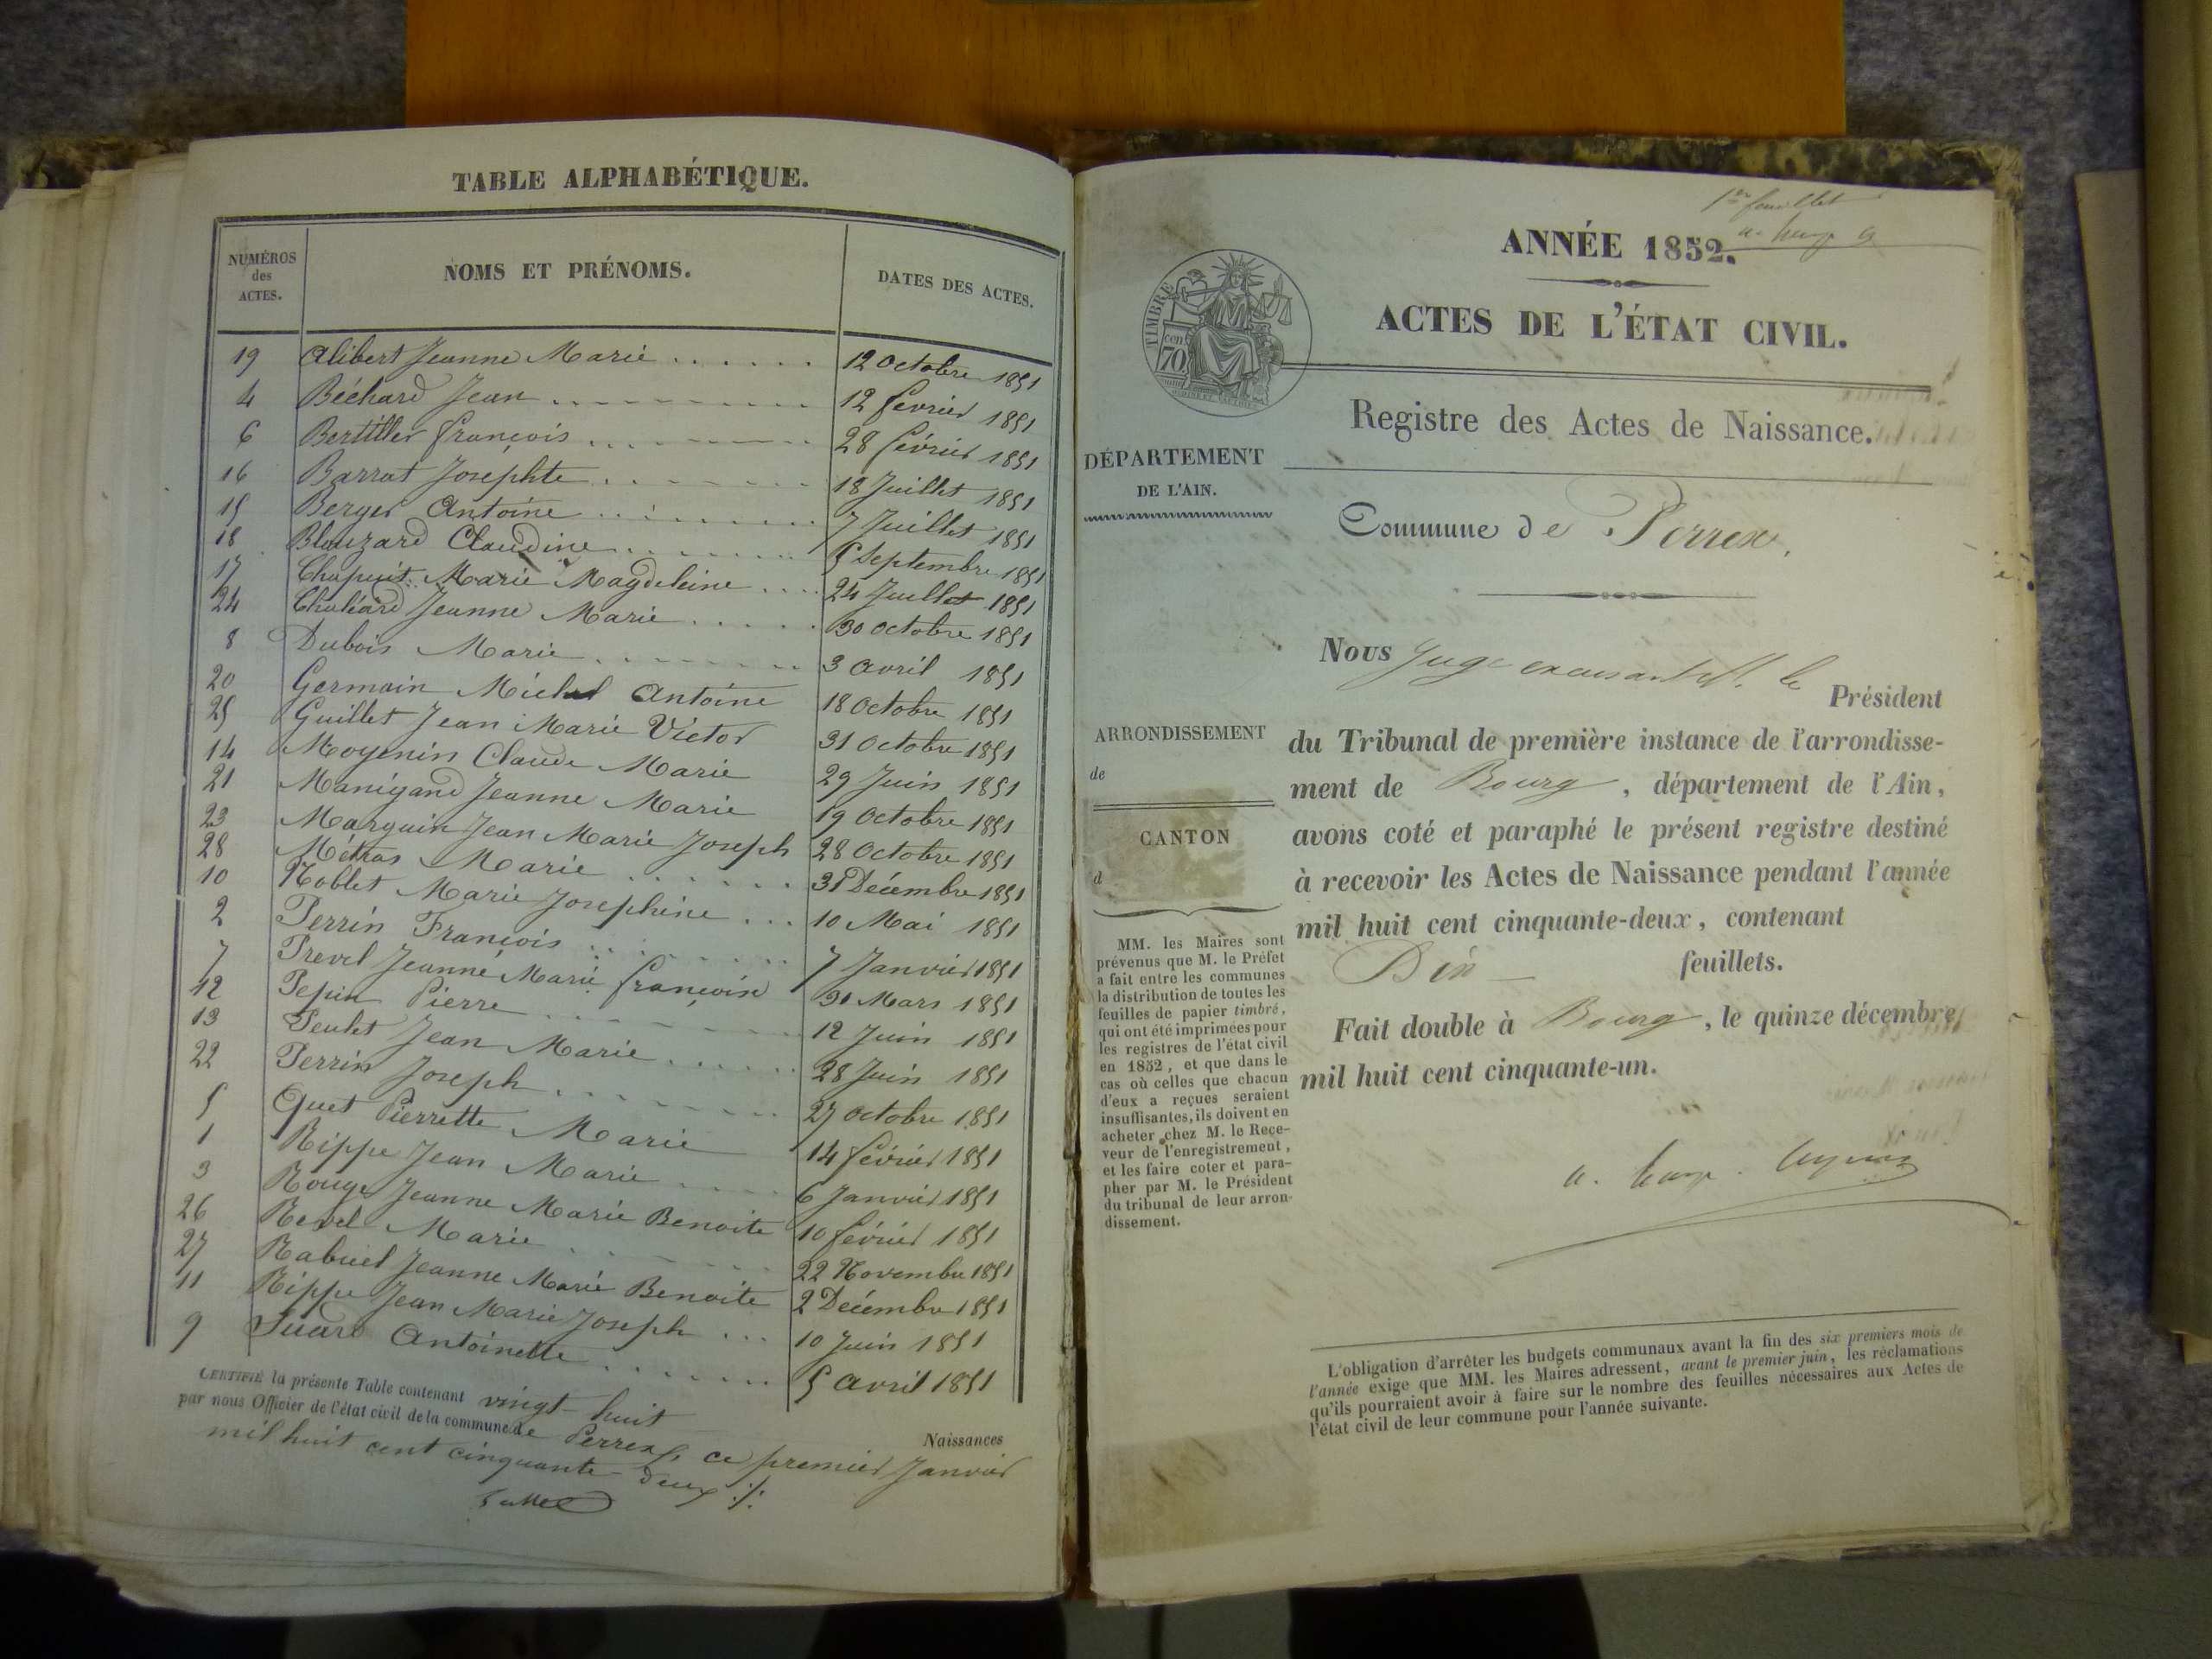 TABLE ALPHABÉTIQUE.
NUMÉROS
des
ACTES.
NOMS ET PRÉNOMS.
DATES DES ACTES.
19 Alibert Jeanne Marie 12 Octobre 1851
4 Béchard Jean 12 février 1851
6 Bertiller françois 28 février 1851
16 Barrat Josephte 18 Juillet 1851
15 Berger Antoine 7 Juillet 1851
18 Blouzard Claudine 5 Septembre 1851
17 Chapuit Marie Magdeleine 24 Juillet 1851
24 Chaléard Jeanne Marie 30 Octobre 1851
8 Dubois Marie 3 Avril 1851
20 Germain Michel Antoine 18 Octobre 1851
25 Guillet Jean Marie Victor 31 Octobre 1851
14 Moyenin Claude Marie 29 Juin 1851
21 Manigand Jeanne Marie 19 Octobre 1851
23 Marguin Jean Marie Joseph 28 Octobre 1851
28 Métras Marie 31 Décembre 1851
10 Noblet Marie Josephine 10 Mai 1851
2 Perrin François 7 Janvier 1851
7 Prevel Jeanne Marie françoise 31 Mars 1851
12 Pepin Pierre 12 Juin 1851
13 Peulet Jean Marie 28 Juin 1851
22 Perrin Joseph 27 Octobre 1851
5 Quet Pierrette Marie 14 février 1851
1 Rippe Jean Marie 6 Janvier 1851
3 Rouge Jeanne Marie Benoite 10 février 1851
26 Revel Marie 22 Novembre 1851
27 Rabuel Jeanne Marie Benoite 2 Décembre 1851
11 Rippe Jean Marie Joseph 10 Juin 1851
9 Suard Antoinette 5 Avril 1851
CERTIFIÉ la présente Table contenant vingt-huit Naissances
par nous Officier de l'état civil de la commune de Perrex, ce premier Janvier
mil huit cent cinquante-deux ./.
1er feuillet
ANNÉE 1852.
ACTES DE L'ÉTAT CIVIL.
TIMBRE
cen
70
Registre des Actes de Naissance.
DÉPARTEMENT
DE L'AIN.
Commune de Perrex.
ARRONDISSEMENT
de
CANTON
d
MM. les Maires sont
prévenus que M. le Préfet
a fait entre les communes
la distribution de toutes les
feuilles de papier timbré,
qui ont été imprimées pour
les registres de l'état civil
en 1852, et que dans le
cas où celles que chacun
d'eux a reçues seraient
insuffisantes, ils doivent en
acheter chez M. le Rece-
veur de l'enregistrement,
et les faire coter et para-
pher par M. le Président
du tribunal de leur arron-
dissement.
Nous Juge le Président
du Tribunal de première instance de l'arrondisse-
ment de Bourg, département de l'Ain,
avons coté et paraphé le présent registre destiné
à recevoir les Actes de Naissance pendant l'année
mil huit cent cinquante-deux, contenant
Dix feuillets.
Fait double à Bourg, le quinze décembre
mil huit cent cinquante-un.
L'obligation d'arrêter les budgets communaux avant la fin des six premiers mois de
l'année exige que MM. les Maires adressent, avant le premier juin, les réclamations
qu'ils pourraient avoir à faire sur le nombre des feuilles nécessaires aux Actes de
l'état civil de leur commune pour l'année suivante.